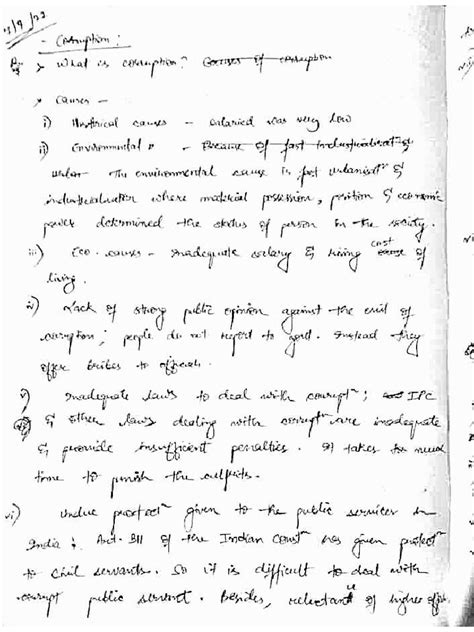 - Corruption :
> What is corruption? Causes of corruption
> Causes -
i) Historical causes - salaried was very low
ii) Environmental " - Because of fast Industrialisatn &
under- The environmental cause is fast urbanisatn &
industrialisation where material possession, position & economic
power determined the status of person in the society.
iii) Eco. causes - Inadequate salary & rising cost of
living.
iv) Lack of strong public opinion against the evil of
corruption; people do not report to govt. Instead they
offer bribes to officials.
v) Inadequate laws to deal with corruptn; IPC
& other laws dealing with corruptn are inadequate
& provide insufficient penalties. It takes too much
time to punish the culprits.
vi) Undue protectn given to the public services in
India : Art. 311 of the Indian Constn has given protectn
to civil servants. So it is difficult to deal with
corrupt public servant. Besides, reluctant of higher